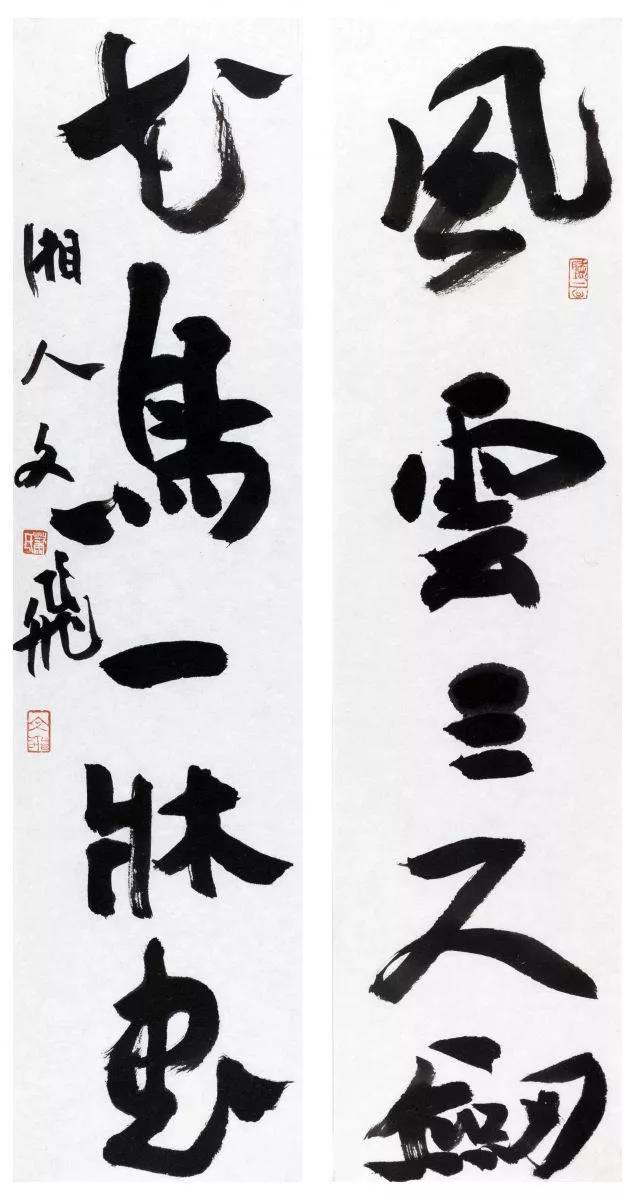 風雲三尺劍
花鳥一牀書
湘人文飛